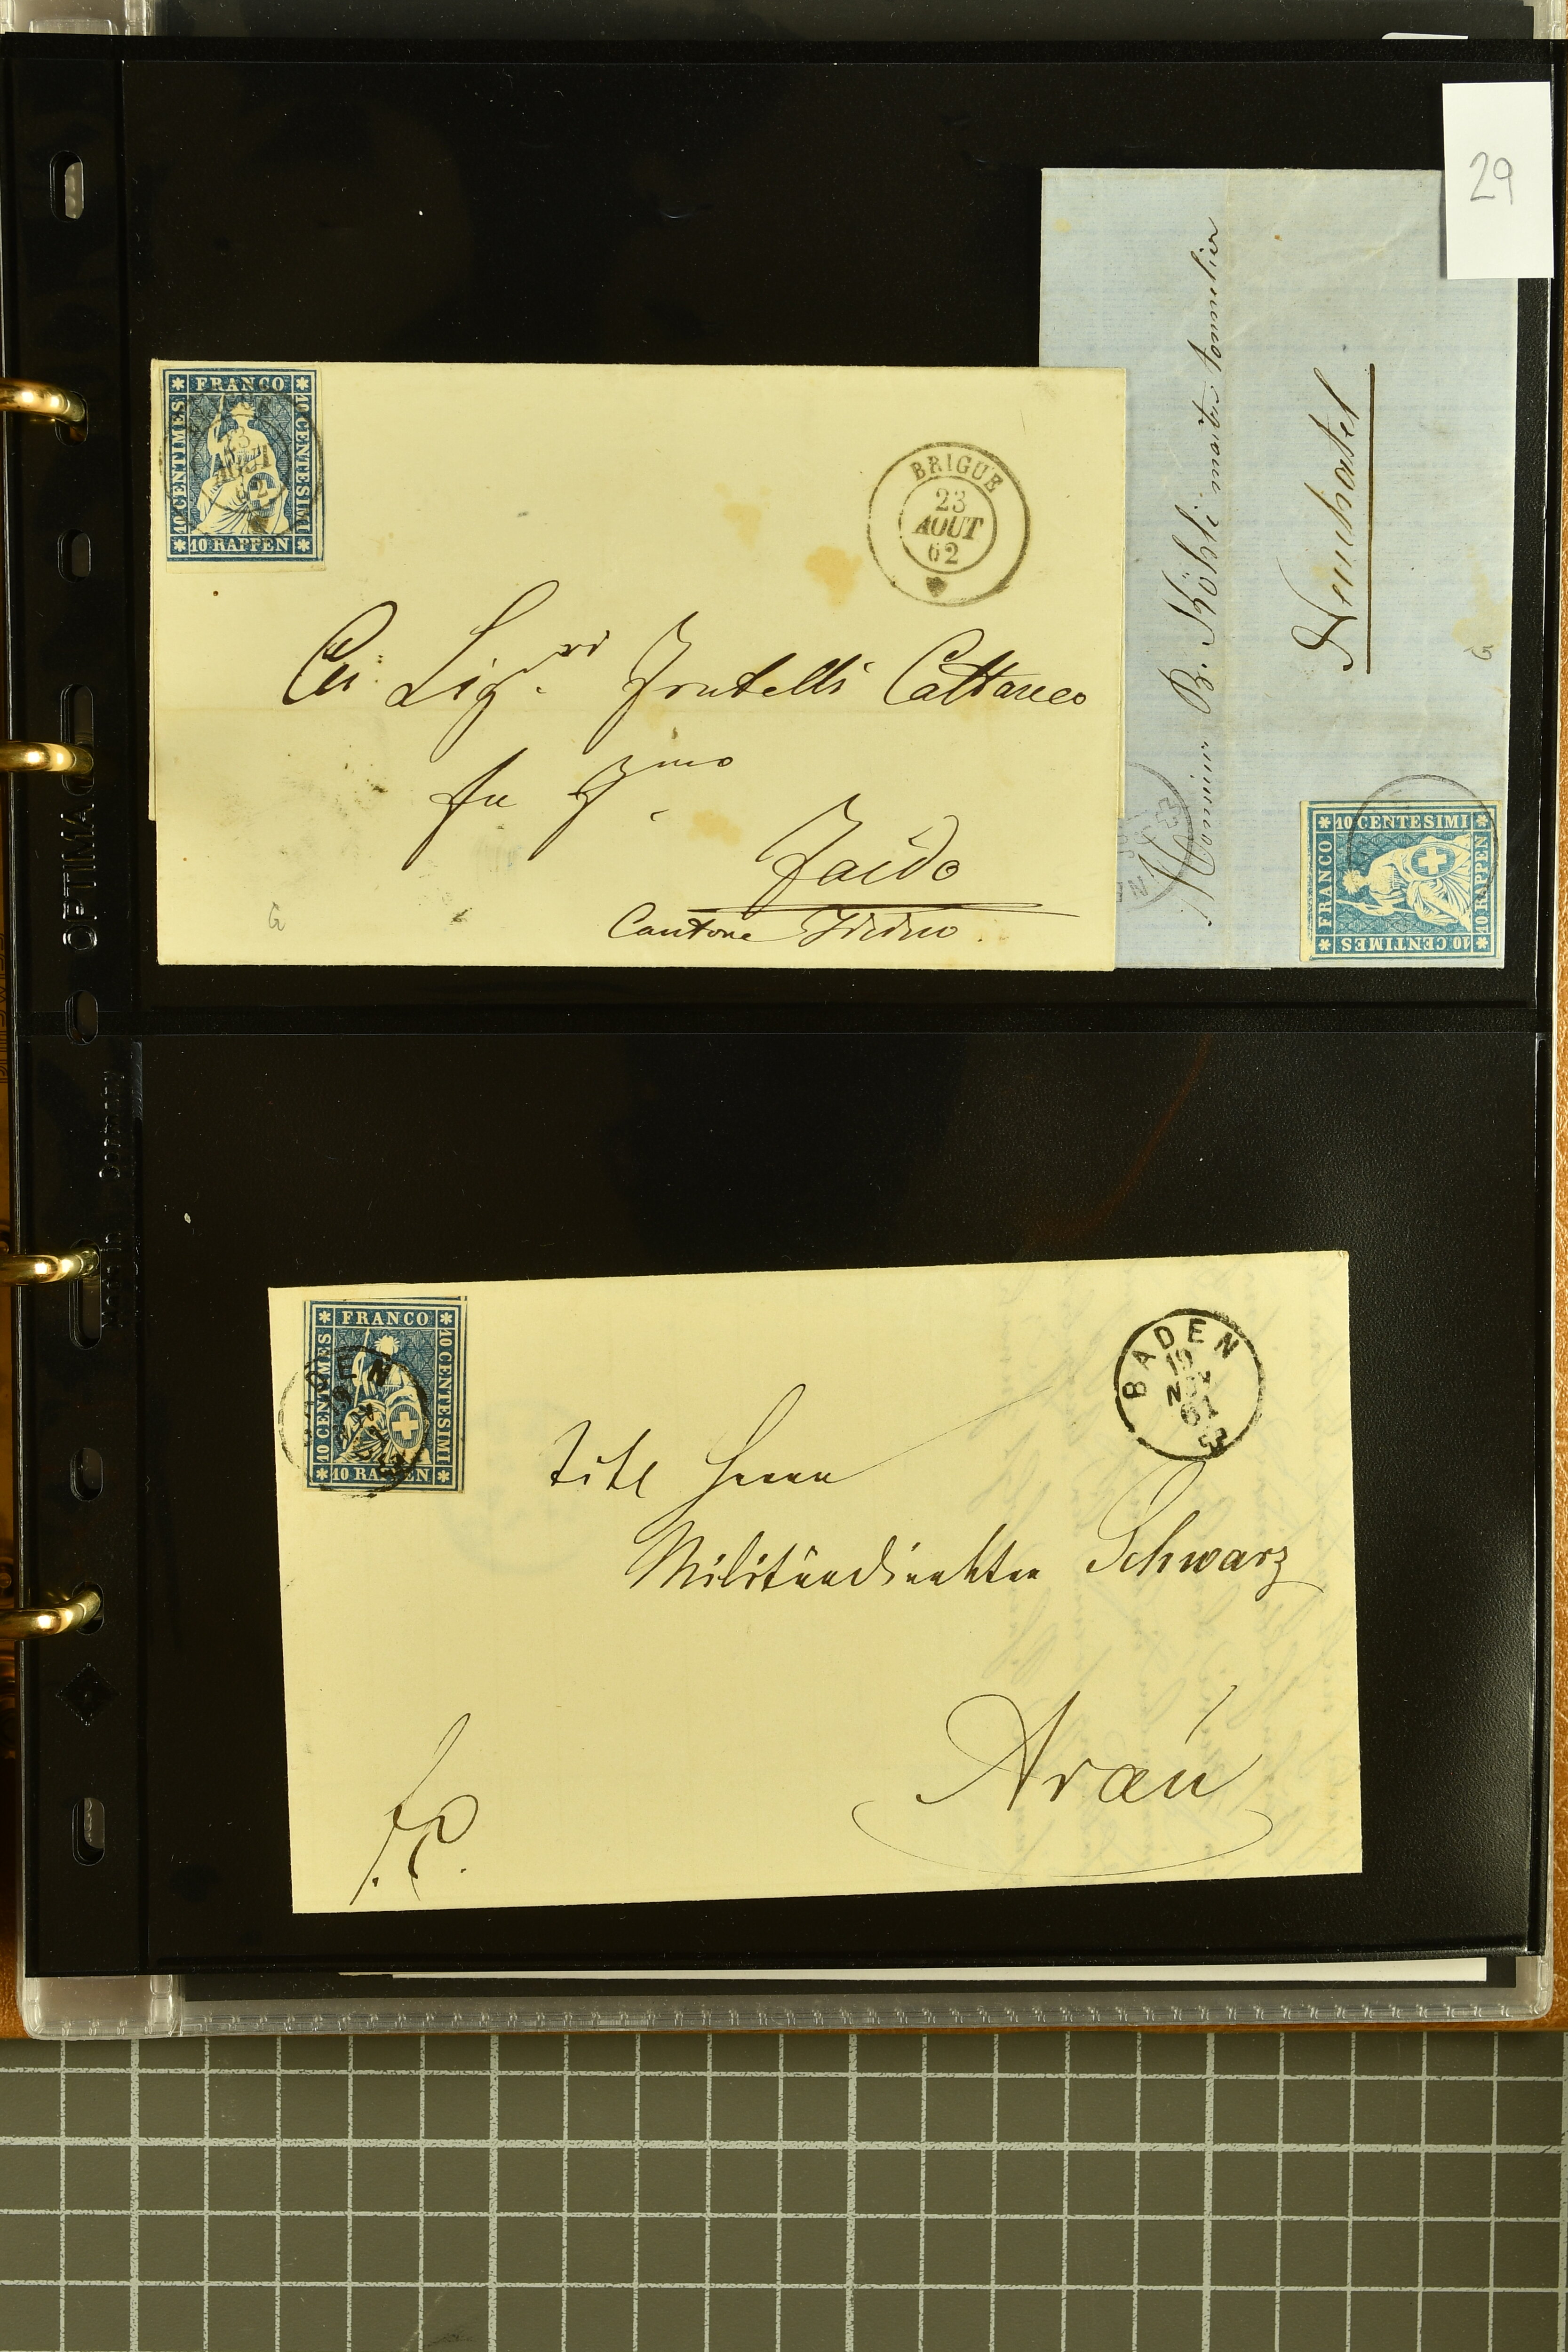 29
FRANCO
10 CENTIMES
10 CENTESIMI
10 RAPPEN
23
AOUT
62
BRIGUE
23
AOUT
62
Fratelli Cattaneo
fu
Faido
Cantone Ticino
G
Monsieur B. Köhli maître tonnelier
Neuchatel
G
FRANCO
10 CENTESIMI
10 CENTIMES
10 RAPPEN
OPTIMA
Made in Germany
FRANCO
10 CENTIMES
10 CENTESIMI
10 RAPPEN
BADEN
19
BADEN
19
NOV
61
Titl Herrn
Militärdirektor Schwarz
Arau